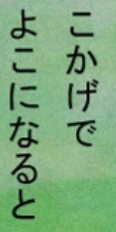 こかげで
よこになると